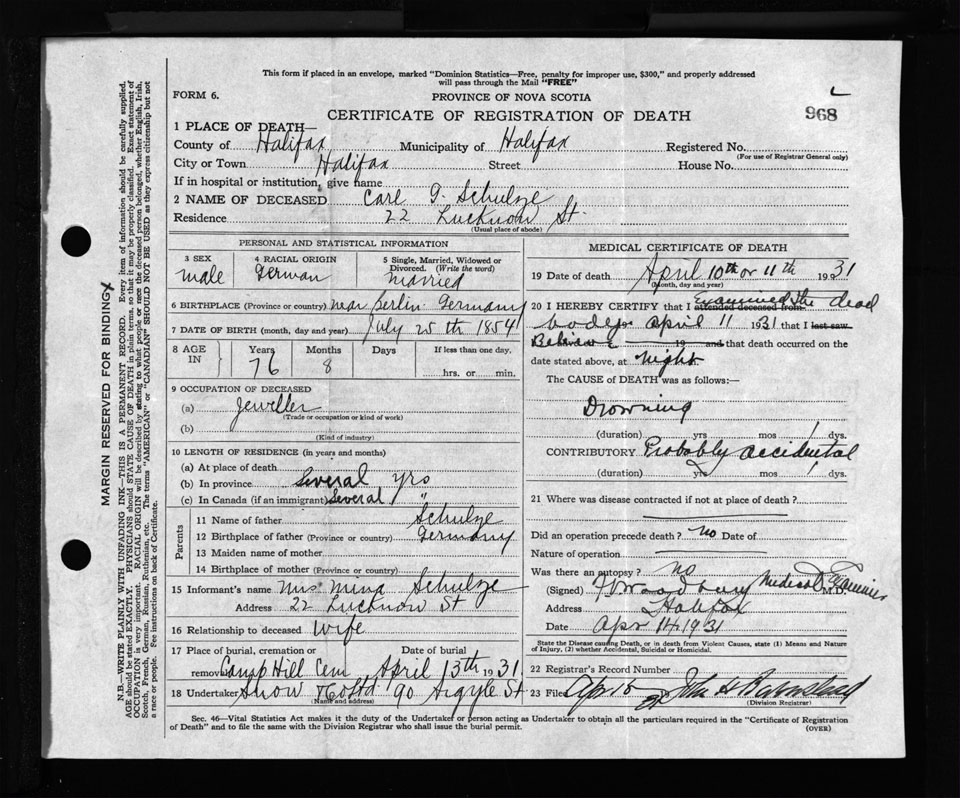 This form if placed in an envelope, marked "Dominion Statistics—Free, penalty for improper use, $300," and properly addressed
will pass through the Mail "FREE"
FORM 6.
PROVINCE OF NOVA SCOTIA
968
CERTIFICATE OF REGISTRATION OF DEATH
1 PLACE OF DEATH—
County of Halifax Municipality of Halifax Registered No.
(For use of Registrar General only)
City or Town Halifax Street House No.
If in hospital or institution, give name
2 NAME OF DECEASED Carl G. Schulze
Residence 22 Lucknow St.
(Usual place of abode)
PERSONAL AND STATISTICAL INFORMATION
3 SEX 4 RACIAL ORIGIN 5 Single, Married, Widowed or
Divorced. (Write the word)
male German married
6 BIRTHPLACE (Province or country) near Berlin Germany
7 DATE OF BIRTH (month, day and year) July 25th 1854
8 AGE IN Years Months Days If less than one day,
76 8 hrs. or min.
9 OCCUPATION OF DECEASED
(a) Jeweller
(Trade or occupation or kind of work)
(b)
(Kind of industry)
10 LENGTH OF RESIDENCE (in years and months)
(a) At place of death
(b) In province Several yrs
(c) In Canada (if an immigrant) Several "
Parents
11 Name of father Schulze
12 Birthplace of father (Province or country) Germany
13 Maiden name of mother
14 Birthplace of mother (Province or country)
15 Informant's name Mrs Mina Schulze
Address 22 Lucknow St
16 Relationship to deceased Wife
17 Place of burial, cremation or Date of burial
removal Camp Hill Cem April 13th 1931
18 Undertaker Snow & Co Ltd 90 Argyle St
(Name and address)
MEDICAL CERTIFICATE OF DEATH
19 Date of death April 10th or 11th 1931
(Month, day and year)
20 I HEREBY CERTIFY that I attended deceased from Examined the dead
body on April 11 1931 that I last saw
19 and that death occurred on the
date stated above, at night
The CAUSE OF DEATH was as follows:—
Drowning
(duration) yrs mos 1 dys.
CONTRIBUTORY Probably accidental
(duration) yrs mos 1 dys.
21 Where was disease contracted if not at place of death?
Did an operation precede death? no Date of
Nature of operation
Was there an autopsy? no
(Signed) Medical Examiner M.D.
Address Halifax
Date Apr 14 1931
State the Disease causing Death, or in death from Violent Causes, state (1) Means and Nature
of Injury, (2) whether Accidental, Suicidal or Homicidal.
22 Registrar's Record Number
23 Filed Apr 15
(Division Registrar)
Sec. 46—Vital Statistics Act makes it the duty of the Undertaker or person acting as Undertaker to obtain all the particulars required in the "Certificate of Registration
of Death" and to file the same with the Division Registrar who shall issue the burial permit.
(OVER)
MARGIN RESERVED FOR BINDING
N.B.—WRITE PLAINLY WITH UNFADING INK—THIS IS A PERMANENT RECORD. Every item of information should be carefully supplied.
AGE should be stated EXACTLY. PHYSICIANS should STATE CAUSE OF DEATH in plain terms, so that it may be properly classified. Exact statement of
OCCUPATION is very important. RACIAL ORIGIN will be described by stating to what people or race the deceased person belonged, whether English, Irish,
Scotch, French, German, Russian, Ruthenian, etc. The terms "AMERICAN" or "CANADIAN" SHOULD NOT BE USED as they express citizenship but not
a race or people. See instructions on back of Certificate.